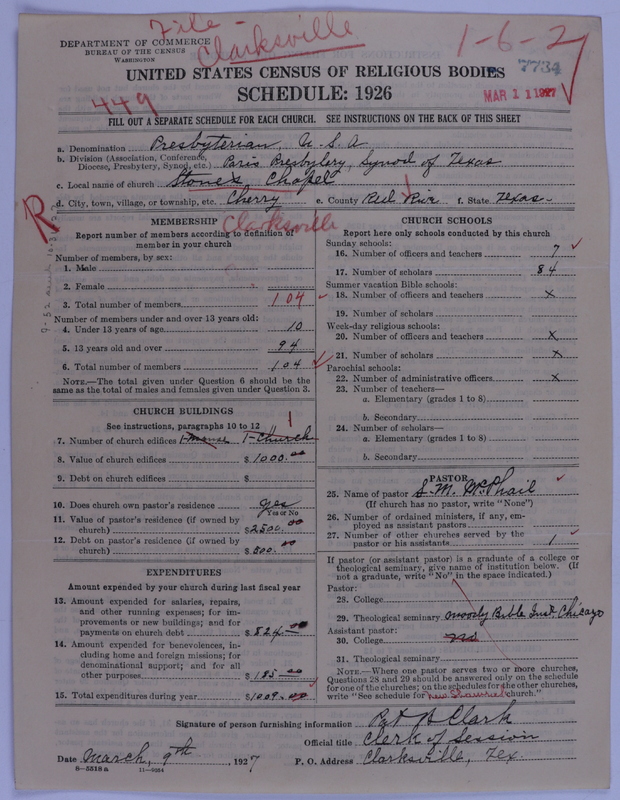 File -
Clarksville
1-6-2
7734
MAR 11 1927
449
DEPARTMENT OF COMMERCE
BUREAU OF THE CENSUS
WASHINGTON
UNITED STATES CENSUS OF RELIGIOUS BODIES
SCHEDULE: 1926
FILL OUT A SEPARATE SCHEDULE FOR EACH CHURCH. SEE INSTRUCTIONS ON THE BACK OF THIS SHEET
a. Denomination Presbyterian, U.S.A
b. Division (Association, Conference, Diocese, Presbytery, Synod, etc.) Paris Presbytery, Synod of Texas
c. Local name of church Stones Chapel
d. City, town, village, or township, etc. Cherry e. County Red River f. State Texas-
R
Clarksville
MEMBERSHIP
Report number of members according to definition of
member in your church
Number of members, by sex:
1. Male
2. Female
3. Total number of members 104
Number of members under and over 13 years old:
4. Under 13 years of age 10
5. 13 years old and over 94
6. Total number of members 104
NOTE.—The total given under Question 6 should be the
same as the total of males and females given under Question 3.
CHURCH BUILDINGS
See instructions, paragraphs 10 to 12
1
7. Number of church edifices 1-manse 1-Church
8. Value of church edifices $1000.00
9. Debt on church edifices $
10. Does church own pastor's residence yes
Yes or No
11. Value of pastor's residence (if owned by
church) $2500.00
12. Debt on pastor's residence (if owned by
church) $500.00
EXPENDITURES
Amount expended by your church during last fiscal year
13. Amount expended for salaries, repairs,
and other running expenses; for im-
provements or new buildings; and for
payments on church debt $824.00
14. Amount expended for benevolences, in-
cluding home and foreign missions; for
denominational support; and for all
other purposes $185.00
15. Total expenditures during year $1009.00
CHURCH SCHOOLS
Report here only schools conducted by this church
Sunday schools:
16. Number of officers and teachers 7
17. Number of scholars 84
Summer vacation Bible schools:
18. Number of officers and teachers x
19. Number of scholars
Week-day religious schools:
20. Number of officers and teachers x
21. Number of scholars x
Parochial schools:
22. Number of administrative officers x
23. Number of teachers—
a. Elementary (grades 1 to 8)
b. Secondary
24. Number of scholars—
a. Elementary (grades 1 to 8)
b. Secondary
PASTOR
25. Name of pastor S.M. McPhail
(If church has no pastor, write "None")
26. Number of ordained ministers, if any, em-
ployed as assistant pastors
27. Number of other churches served by the
pastor or his assistants 1
If pastor (or assistant pastor) is a graduate of a college or
theological seminary, give name of institution below. (If
not a graduate, write "No" in the space indicated.)
Pastor:
28. College
29. Theological seminary Moody Bible Inst. Chicago
Assistant pastor:
30. College no
31. Theological seminary
NOTE.—Where one pastor serves two or more churches,
Questions 28 and 29 should be answered only on the schedule
for one of the churches; on the schedules for the other churches,
write "See schedule for New Shawnee church."
Signature of person furnishing information Pat H Clark
Official title Clerk of Session
Date March, 9th, 1927 P. O. Address Clarksville, Tex.
8-5518 a 11-9264